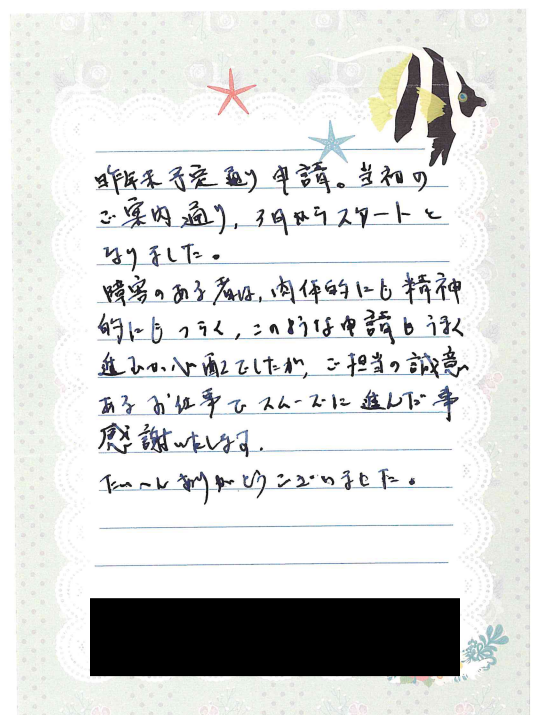 昨年末予定通り申請。当初の
ご案内通り、3月からスタートと
なりました。
障害のある者は、肉体的にも精神
的にもつらく、このような申請もうまく
進むか心配でしたが、ご担当の誠意
あるお仕事でスムーズに進んだ事
感謝いたします。
たいへんありがとうございました。